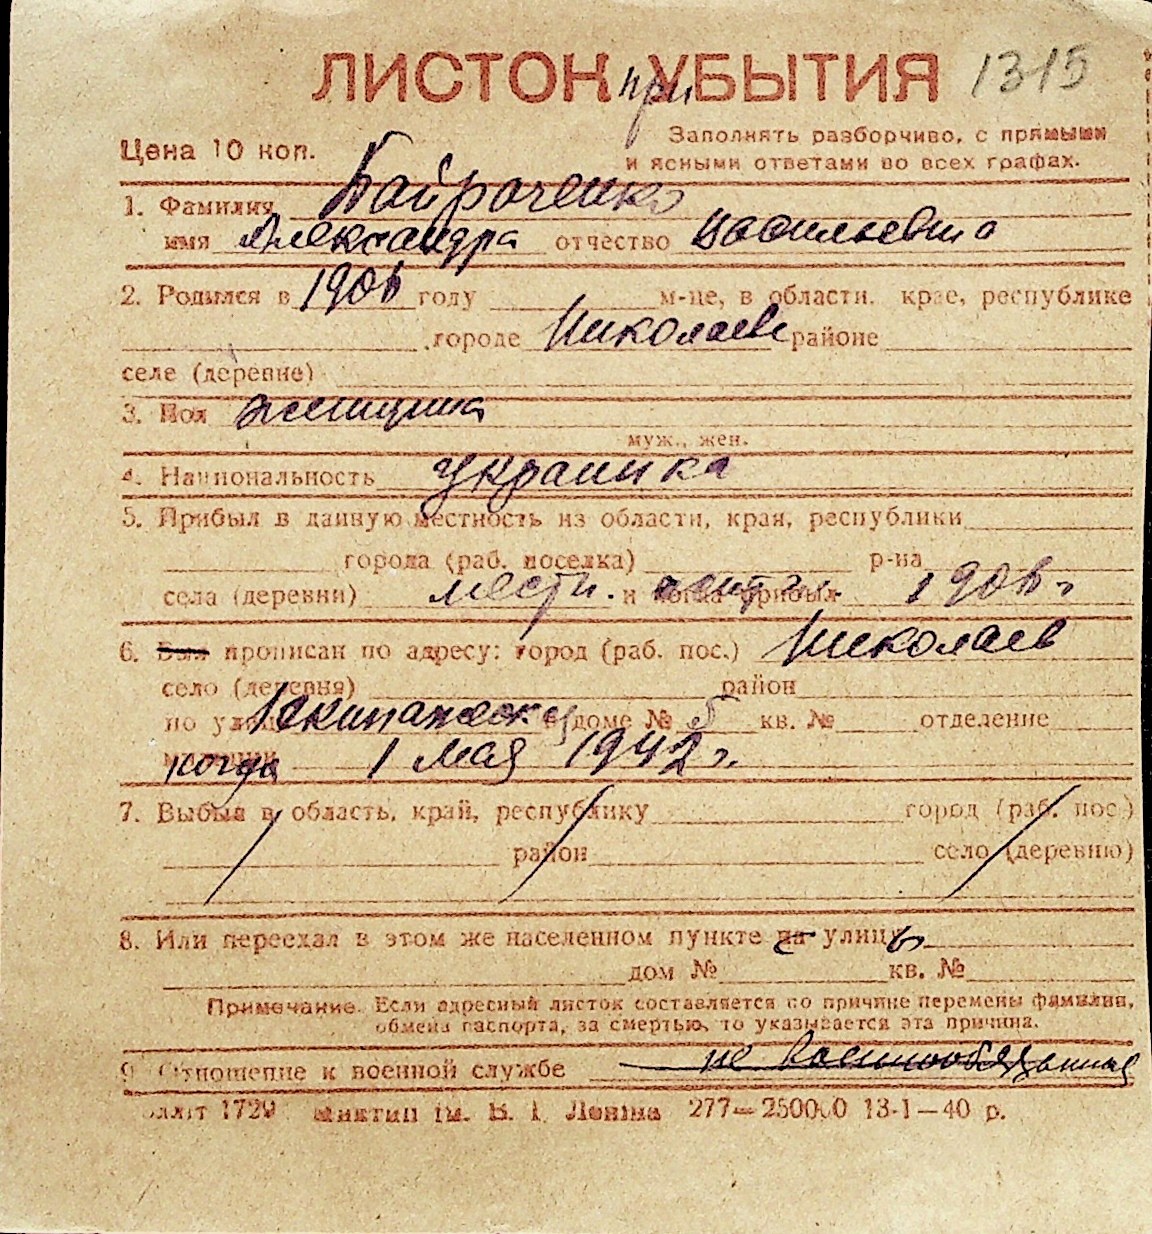 ЛИСТОК при УБЫТИЯ 1315
Цена 10 коп.
Заполнять разборчиво, с прямыми
и ясными ответами во всех графах.
1. Фамилия Байраченко
имя Александра отчество Васильевна
2. Родился в 1906 году м-це, в области, крае, республике
городе Николаеве районе
селе (деревне)
3. Пол женщина
муж., жен.
4. Национальность украинка
5. Прибыл в данную местность из области, края, республики
города (раб. поселка) р-на
села (деревни) местн. и когда прибыл 1906 г.
6. Был прописан по адресу: город (раб. пос.) Николаев
село (деревня) район
по улице Экипажеск доме № 5 кв. № отделение
когда 1 мая 1942 г.
7. Выбыл в область, край, республику город (раб. пос.)
район село (деревню)
8. Или переехал в этом же населенном пункте с улицы
дом № кв. №
Примечание. Если адресный листок составляется по причине перемены фамилии,
обмена паспорта, за смертью, то указывается эта причина.
9. Отношение к военной службе не военнообязанная
1729 им. В. І. Леніна 277—250000 13-1—40 р.